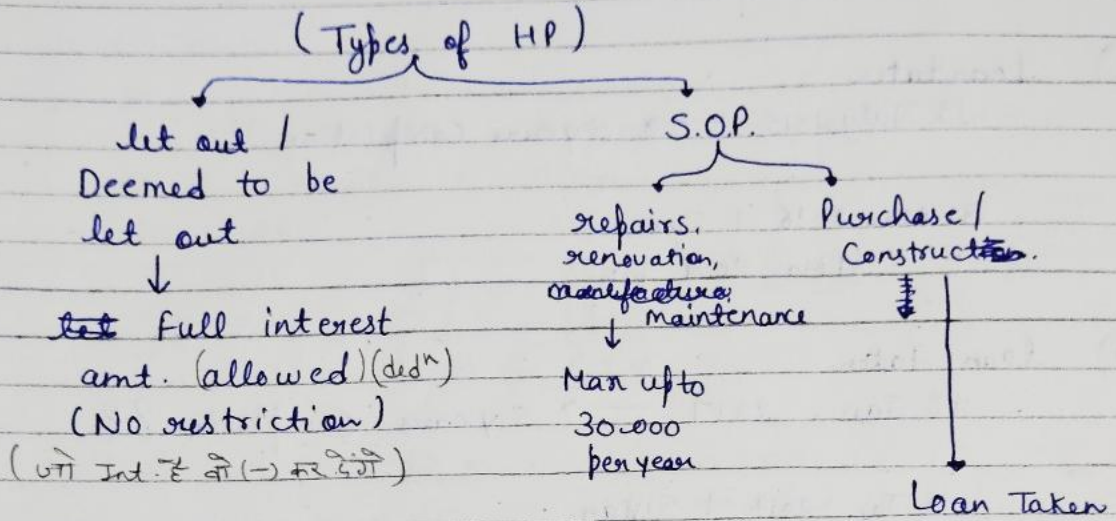 (Types of HP)
let out /
Deemed to be
let out
Full interest
amt. (allowed) (dedⁿ)
(No restriction)
(जो Int. है वो (-) कर देंगे)
S.O.P.
repairs,
renovation,
maintenance
Max upto
30.000
per year
Purchase /
Construction.
Loan Taken